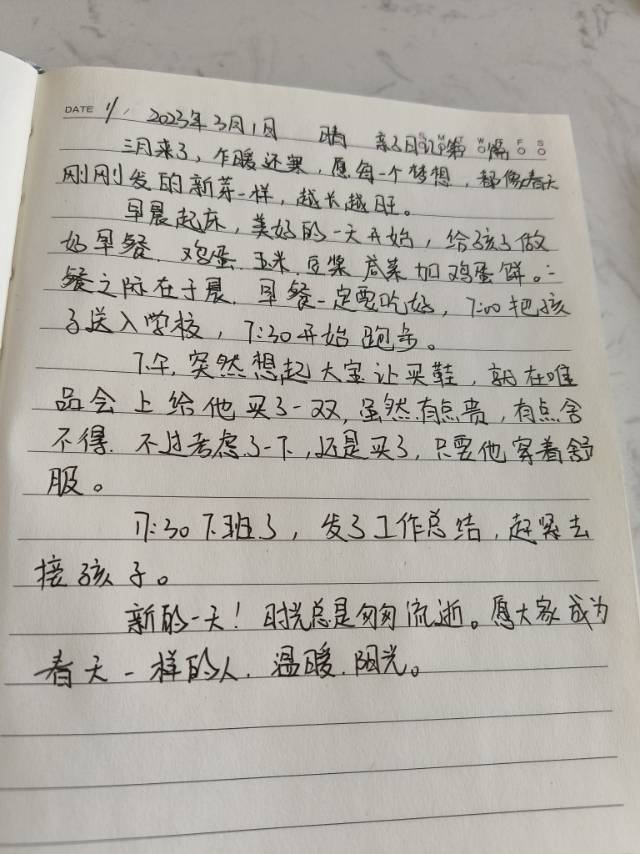 DATE 1/1 2023年3月1日 晴 亲子日记第1篇
三月来了，乍暖还寒，愿每一个梦想，都像春天
刚刚发的新芽一样，越长越旺。
早晨起床，美好的一天开始，给孩子做
好早餐．鸡蛋．玉米．豆浆 咸菜加鸡蛋饼。一
餐之际在于晨．早餐一定要吃好，7:00把孩
子送入学校，7:30开始跑步。
下午，突然想起大宝让买鞋，就在唯
品会上给他买了一双，虽然有点贵，有点舍
不得．不过考虑了一下，还是买了，只要他穿着舒
服。
17:30下班了，发了工作总结，赶紧去
接孩子。
新的一天！时光总是匆匆流逝。愿大家成为
春天一样的人．温暖．阳光。